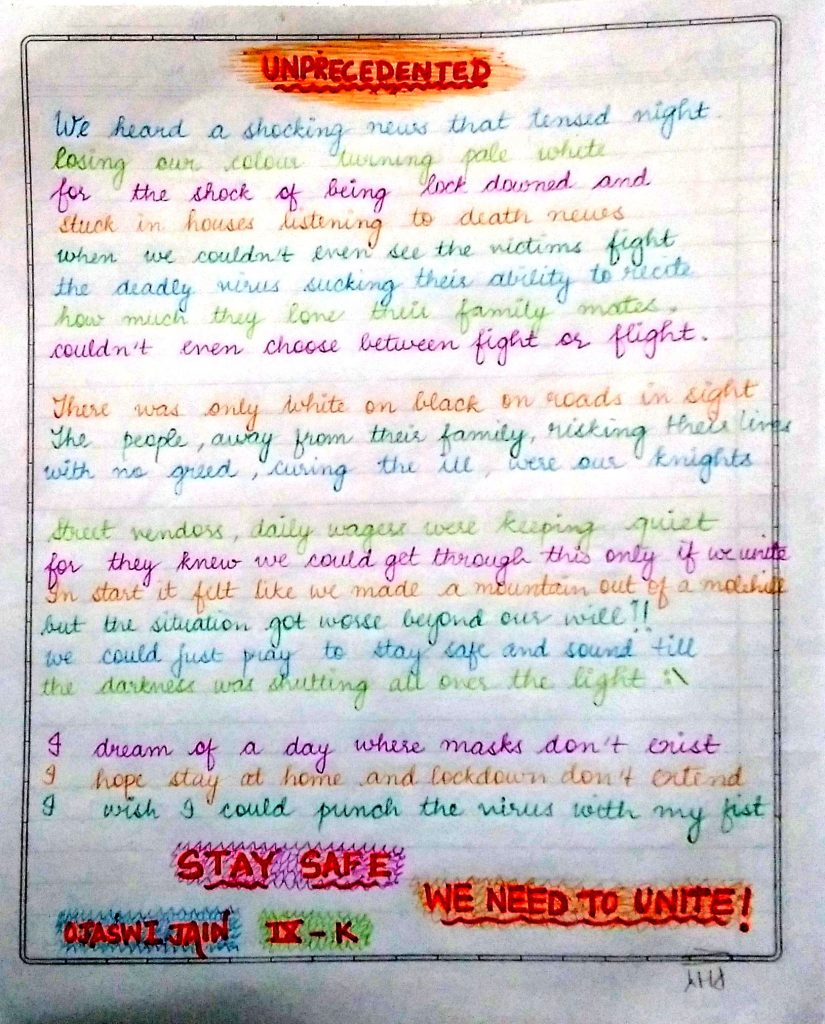 UNPRECEDENTED
We heard a shocking news that tensed night.
losing our colour turning pale white
for the shock of being lock downed and
stuck in houses listening to death news
when we couldn't even see the victims fight
the deadly virus sucking their ability to recite
how much they love their family mates.
couldn't even choose between fight or flight.
There was only white on black on roads in sight
The people, away from their family, risking their lives
with no greed, curing the ill, were our knights
Street vendors, daily wagers were keeping quiet
for they knew we could get through this only if we unite
In start it felt like we made a mountain out of a molehill
but the situation got worse beyond our will!!
we could just pray to stay safe and sound till
the darkness was shutting all over the light :\
I dream of a day where masks don't exist
I hope stay at home and lockdown don't extend
I wish I could punch the virus with my fist
STAY SAFE
WE NEED TO UNITE!
OJASWI JAIN IX-K